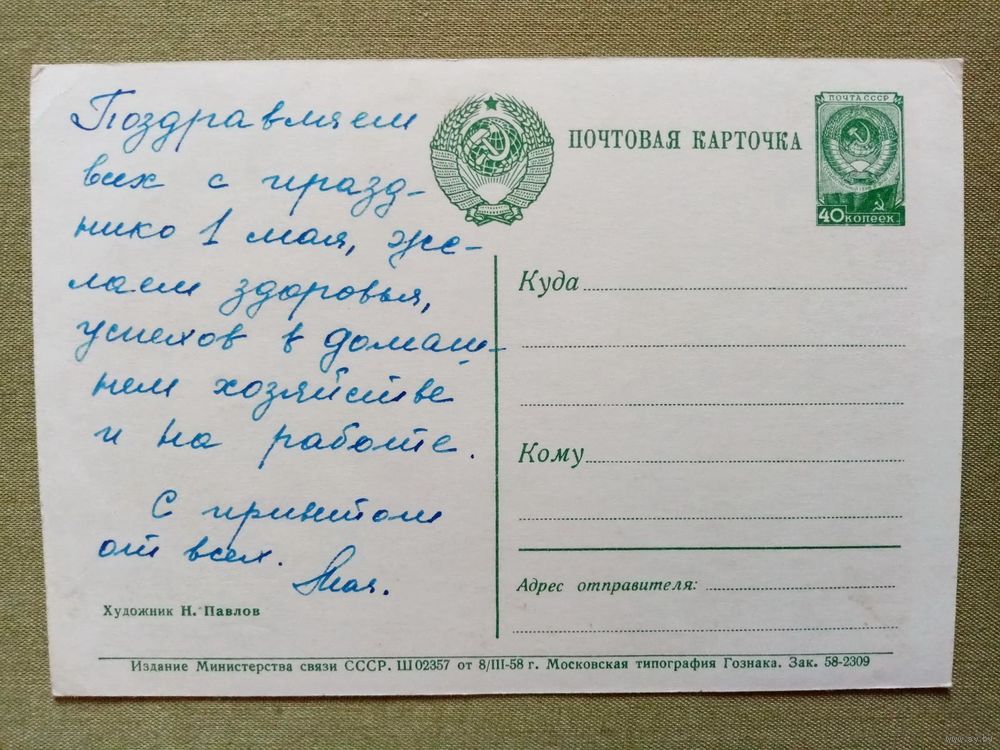 Поздравляем
всех с празд-
нико 1 мая, же-
лаем здоровья,
успехов в домаш-
нем хозяйстве
и на работе.
С приветом
от всех.
Мая.
Художник Н. Павлов
ПОЧТОВАЯ КАРТОЧКА
ПОЧТА СССР
40 КОПЕЕК
Куда
Кому
Адрес отправителя:
Издание Министерства связи СССР. Ш 02357 от 8/III-58 г. Московская типография Гознака. Зак. 58-2309
www.ay.by